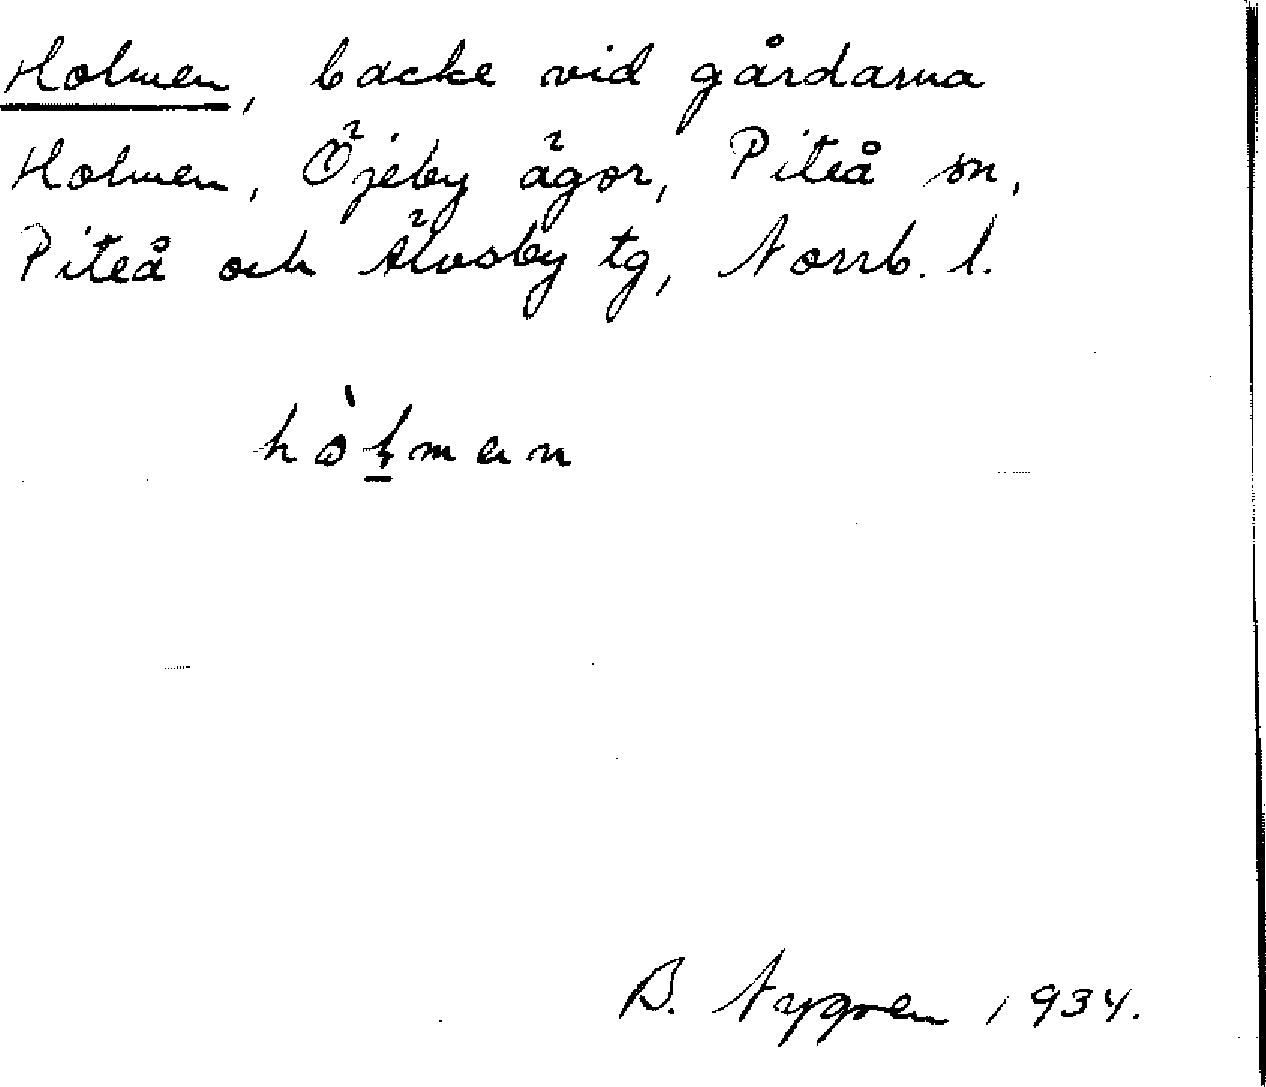 Holmen, backe vid gårdarna
Holmen, Öjeby ägor, Piteå sn,
Piteå och Älvsby tg, Norrb. l.
hòḻman
B. Nygren 1934.